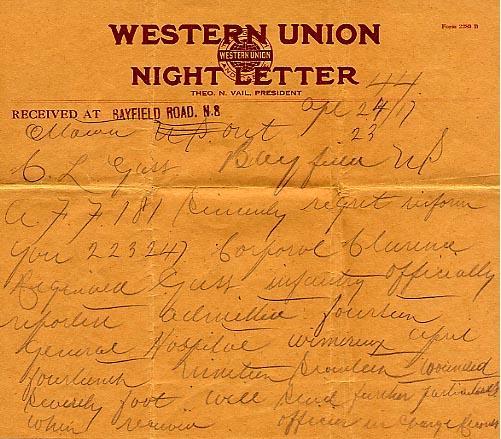 Form 2289 B
WESTERN UNION
WESTERN UNION
NIGHT LETTER
THEO. N. VAIL, PRESIDENT
44
RECEIVED AT BAYFIELD ROAD, N.S Apl 24/17
Ottawa Ont 23
C. L Gass Bayfield NS
A. F. 7181 Sincerely regret inform
you 223247 Corporal Clarence
Reginald Gass infantry officially
reported admitted fourteen
General Hospital wimereux april
fourteenth nineteen seventeen wounded
severely foot will send further particulars
when receive officer in charge Records